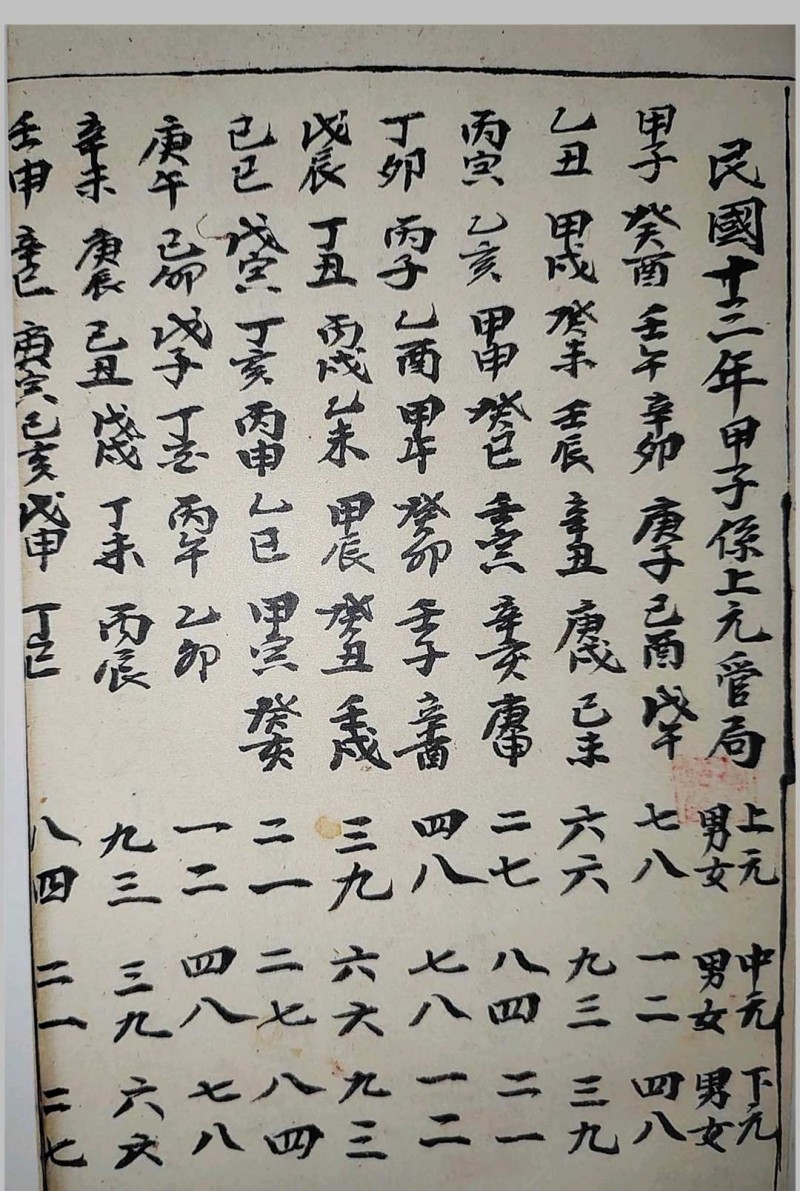 民國十三年甲子係上元管局 上元男女 中元男女 下元男女
甲子 癸酉 壬午 辛卯 庚子 己酉 戊午 七八 一二 四八
乙丑 甲戌 癸未 壬辰 辛丑 庚戌 己未 六六 九三 三九
丙寅 乙亥 甲申 癸巳 壬寅 辛亥 庚申 二七 八四 二一
丁卯 丙子 乙酉 甲午 癸卯 壬子 辛酉 四八 七八 一二
戊辰 丁丑 丙戌 乙未 甲辰 癸丑 壬戌 三九 六六 九三
己巳 戊寅 丁亥 丙申 乙巳 甲寅 癸亥 二一 二七 八四
庚午 己卯 戊子 丁酉 丙午 乙卯 一二 四八 七八
辛未 庚辰 己丑 戊戌 丁未 丙辰 九三 三九 六六
壬申 辛巳 庚寅 己亥 戊申 丁巳 八四 二一 二七